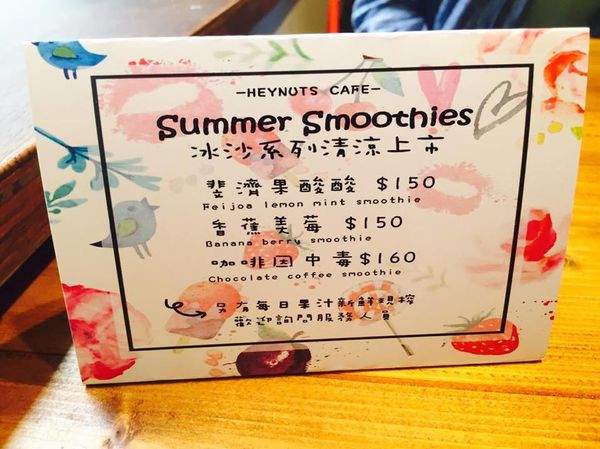 —HEYNUTS CAFE—
Summer Smoothies
冰沙系列清涼上市
斐濟果酸酸 $150
Feijoa lemon mint smoothie
香蕉美莓 $150
Banana berry smoothie
咖啡因中毒$160
Chocolate coffee smoothie
另有每日果汁新鮮現榨
歡迎詢問服務人員